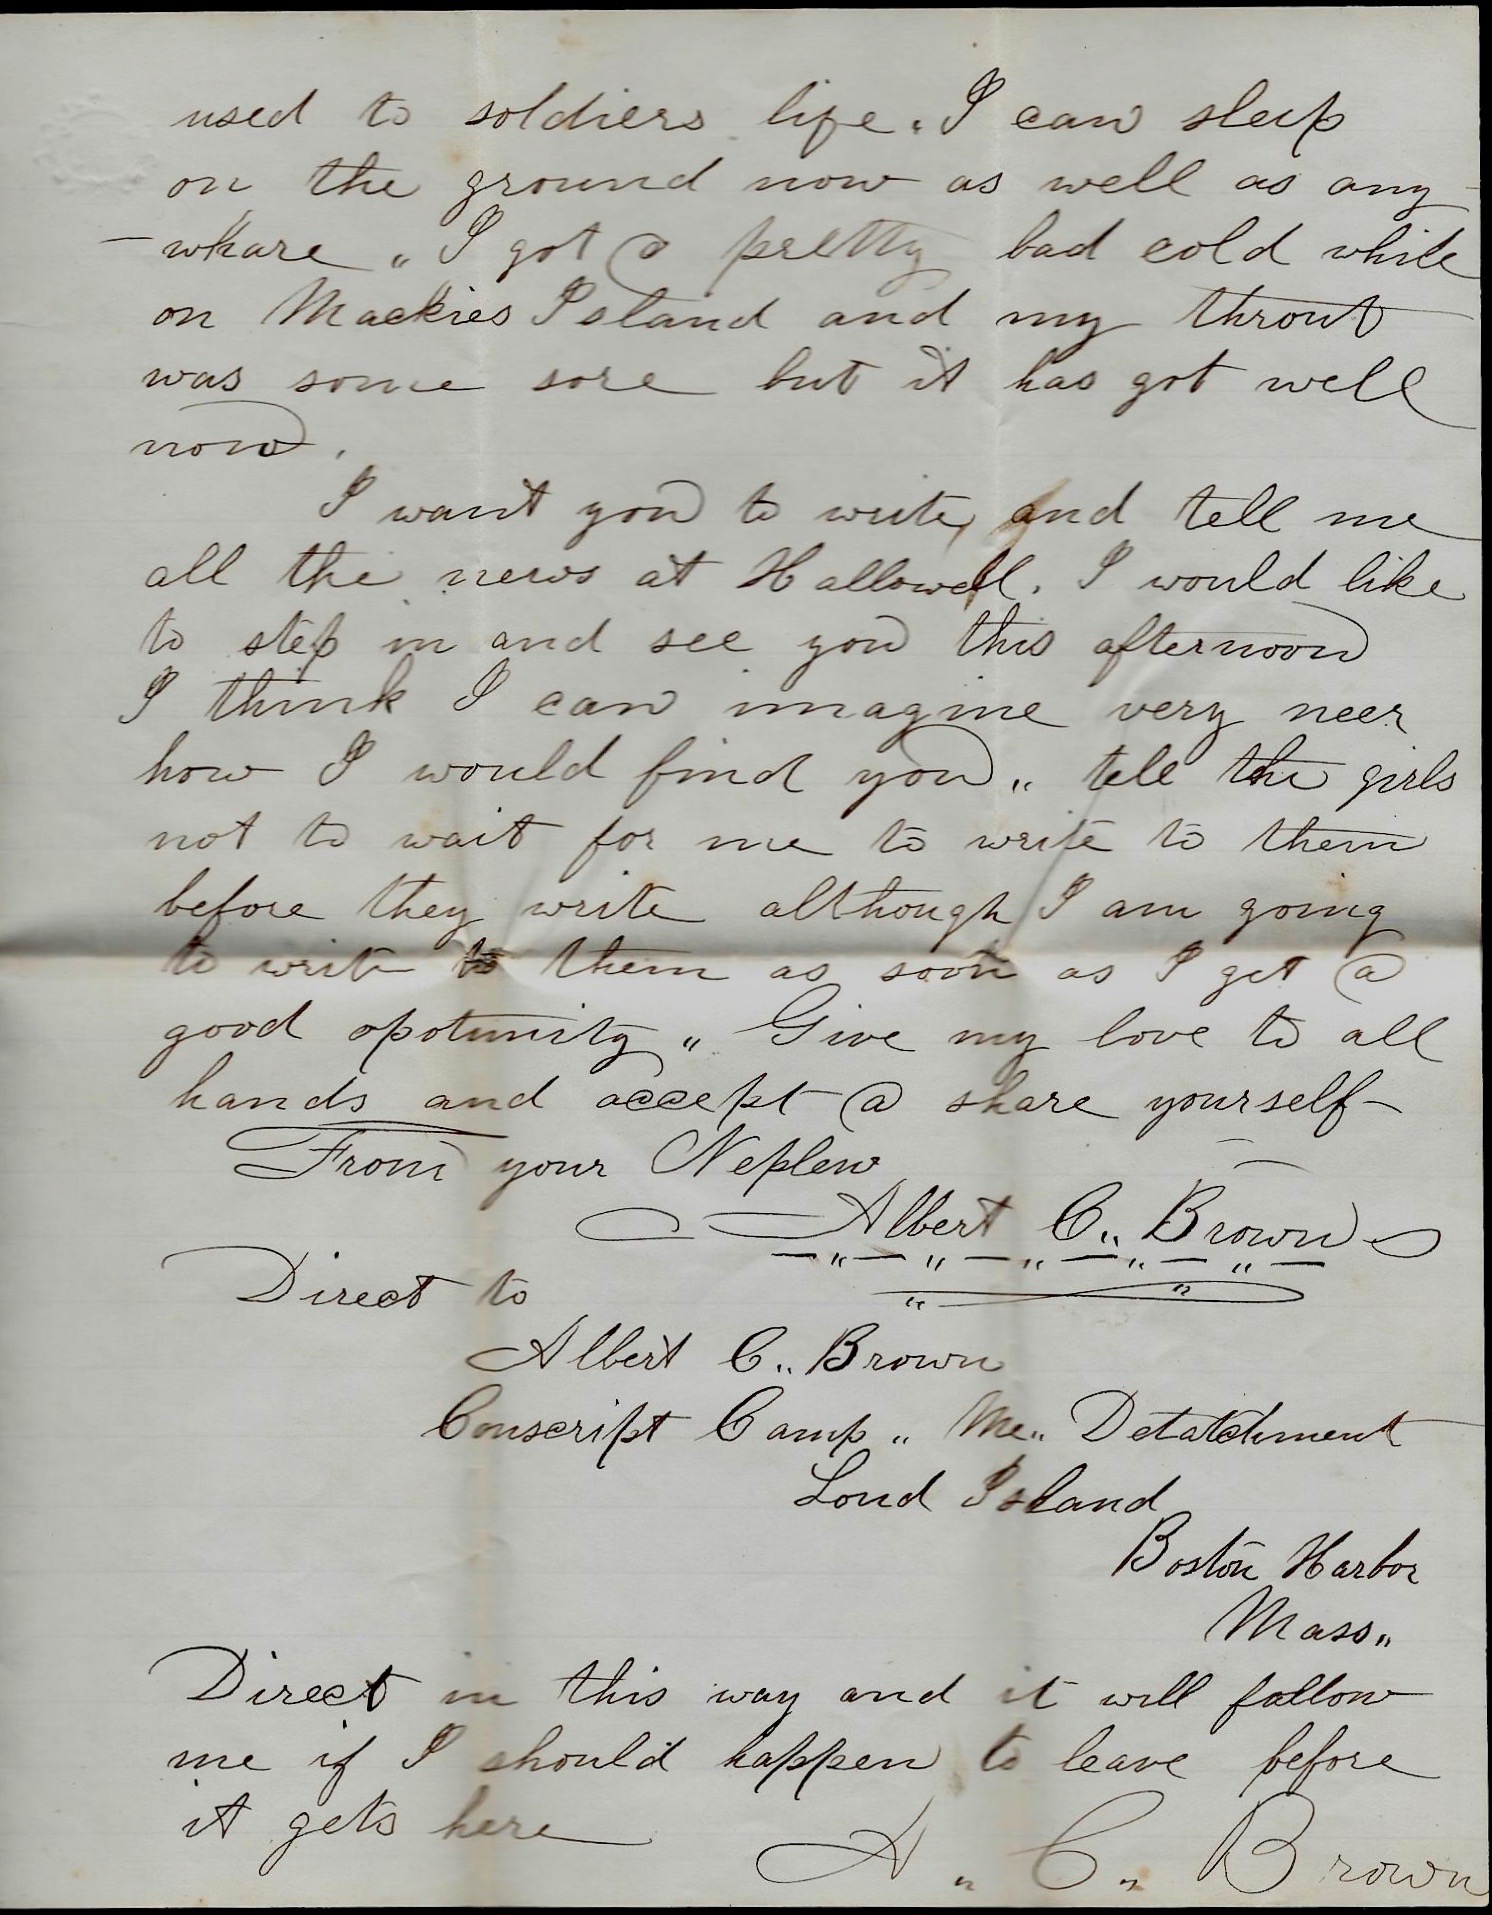 used to soldiers life. I can sleep
on the ground now as well as any-
-whare „ I got a pretty bad cold while
on Mackies Island and my throut
was some sore but it has got well
now.
I want you to write, and tell me
all the news at Hallowell. I would like
to step in and see you this afternoon
I think I can imagine very neer
how I would find you „ tell the girls
not to wait for me to write to them
before they write although I am going
to write to them as soon as I get a
good opotunity „ Give my love to all
hands and accept a share yourself-
From your Nephew
Albert C„ Brown
Direct to
Albert C„ Brown
Conscript Camp „ Me„ Detatchment
Loud Island
Boston Harbor
Mass„
Direct in this way and it will follow
me if I should happen to leave before
it gets here
A„ C„ Brown